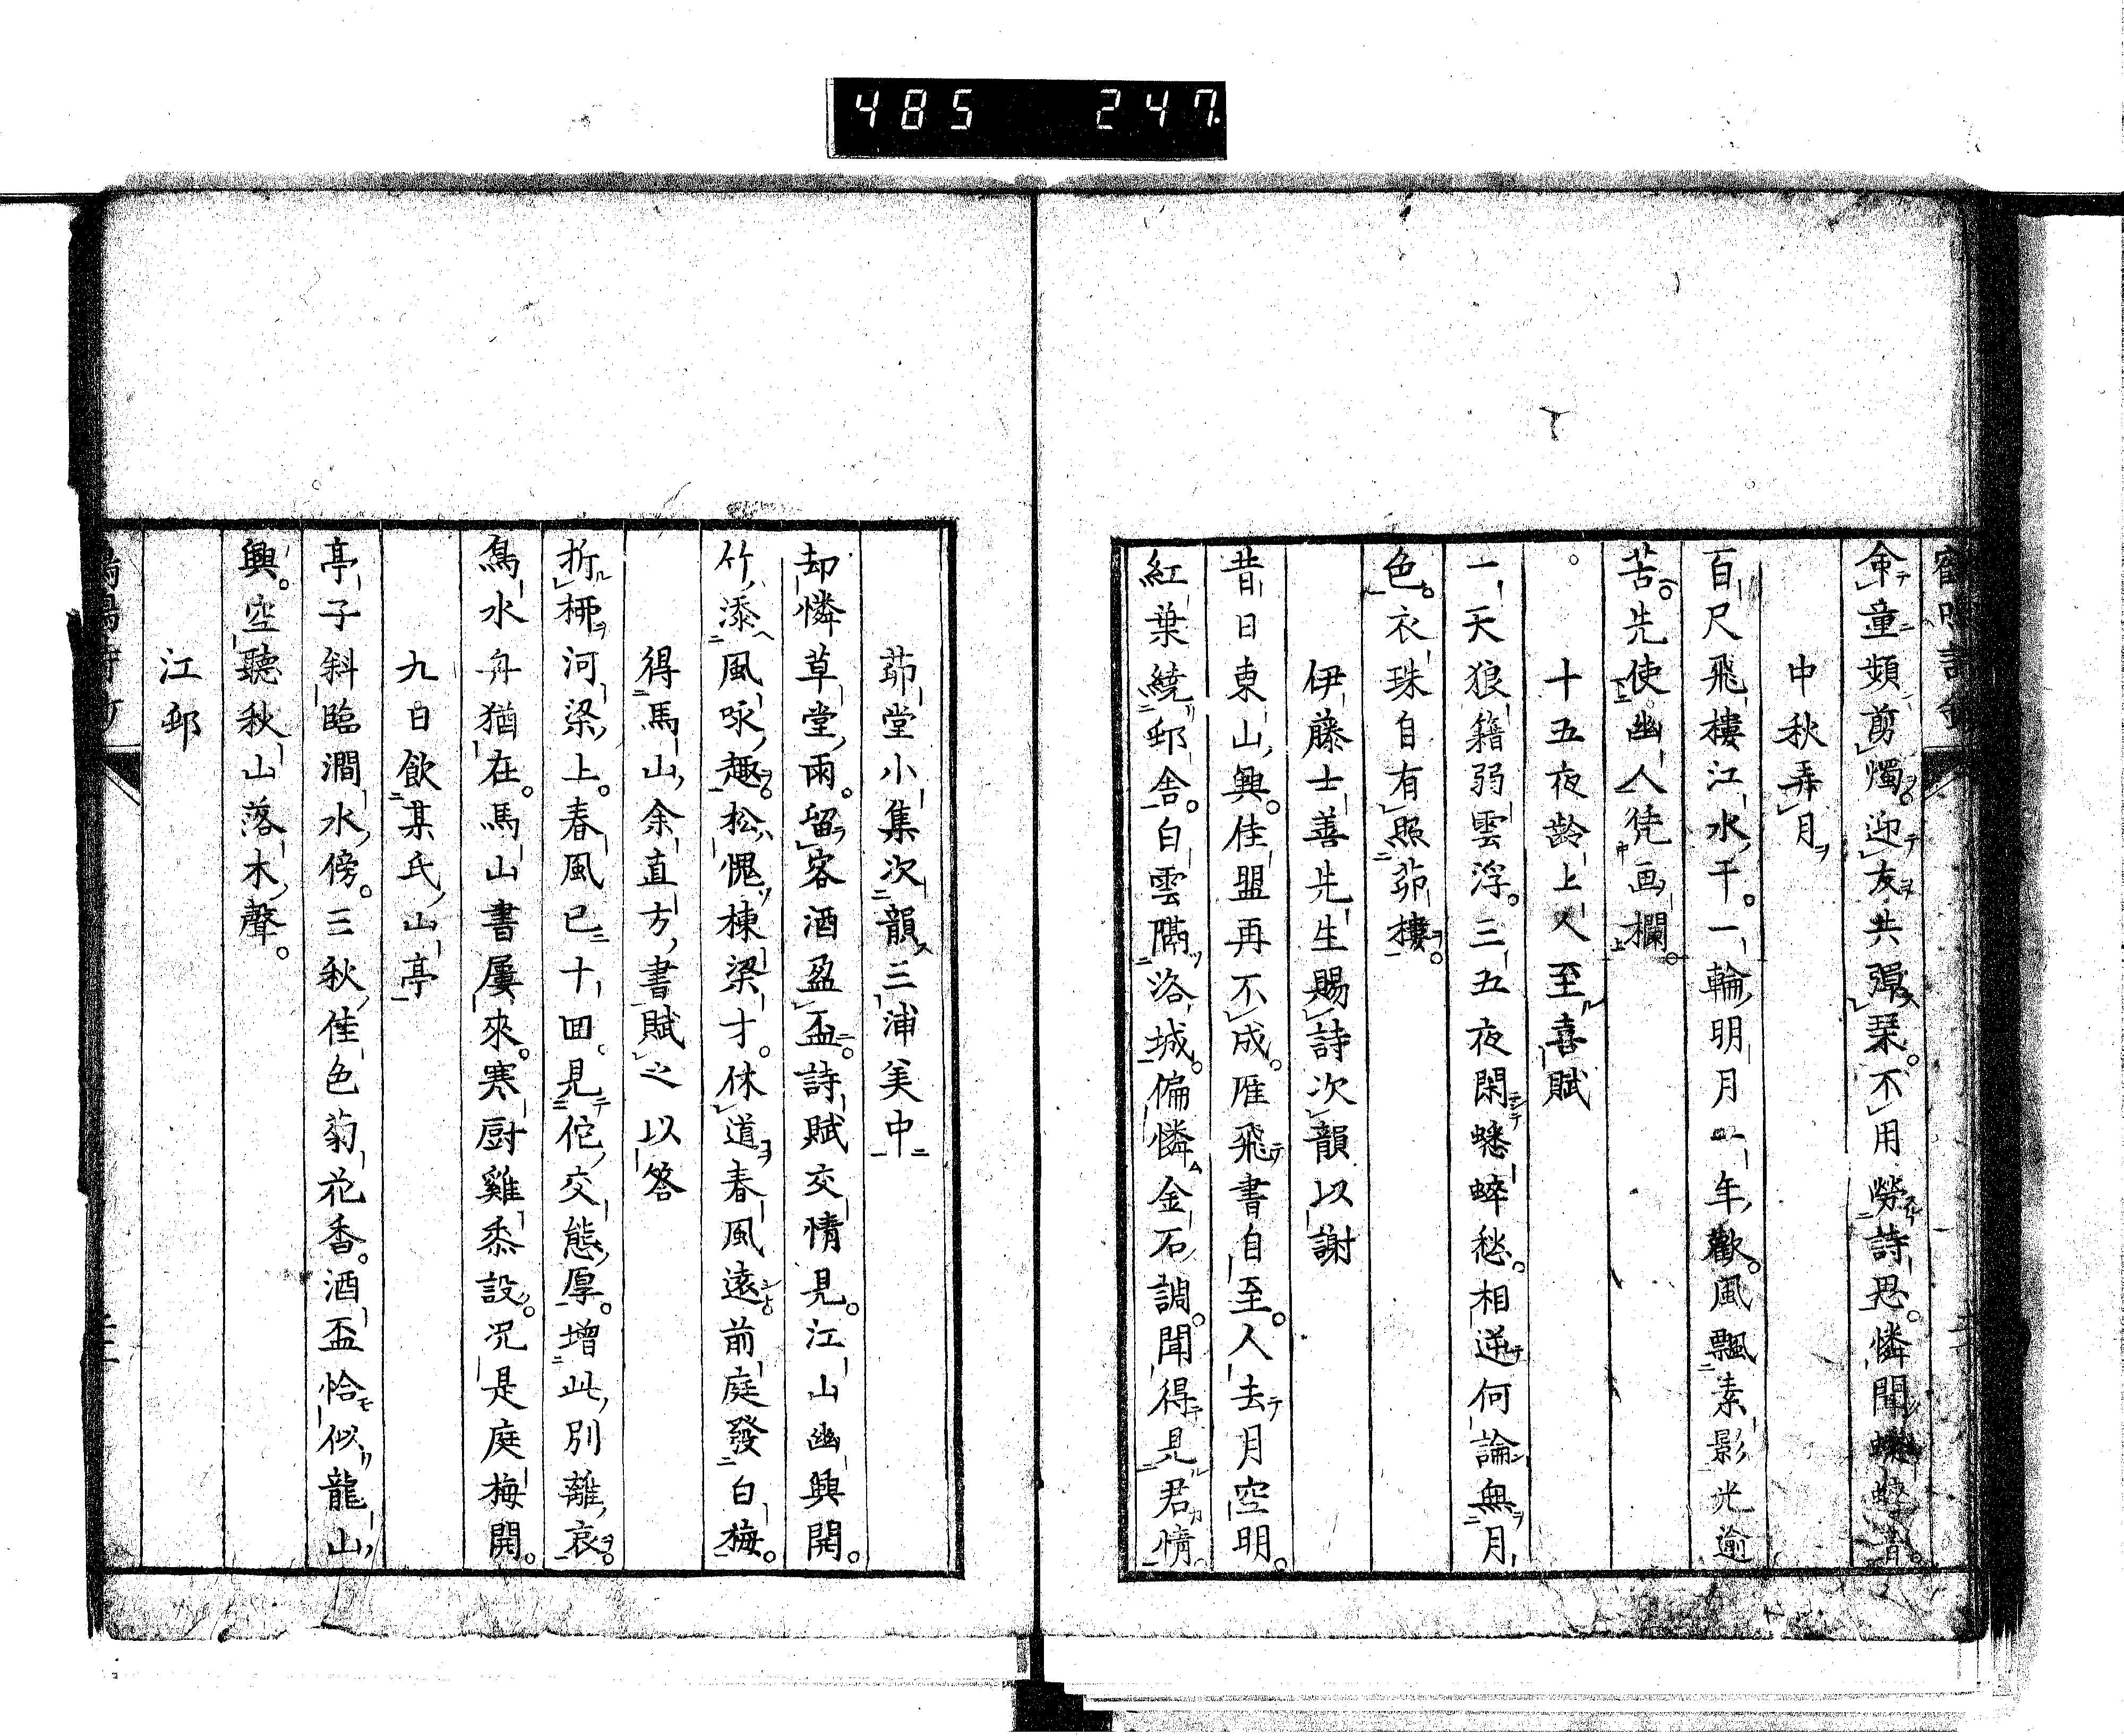 485 247
命童頻剪燭。迎友共彈琹。不用勞詩思。憐聞蟋蟀音。
中秋弄月
百尺飛樓江水干。一輪明月一年歡。風飄素影光逾
苦。先使幽人凭画欄。
十五夜齡上人至喜賦
一天狼籍弱雲浮。三五夜閑蟋蟀愁。相逆何論無月
色。衣珠自有照茆樓。
伊藤士善先生賜詩次韻以謝
昔日東山興。佳盟再不成。雁飛書自至。人去月空明。
紅葉繞邨舎。白雲隔洛城。偏憐金石調。聞得見君情。
茆堂小集次韻三浦美中
却憐草堂雨。留客酒盈盃。詩賦交情見。江山幽興開。
竹添風咏趣。松愧棟梁才。休道春風遠前庭發白梅。
得馬山余直方書賦之以答
折栁河梁上。春風已十回。見佗交態厚。增此別離哀。
鳬水舟猶在。馬山書屢來。寒厨雞黍設。况是庭梅開。
九日飲某氏山亭
亭子斜臨澗水傍。三秋佳色菊花香。酒盃恰似龍山
興。空聽秋山落木聲。
江邨